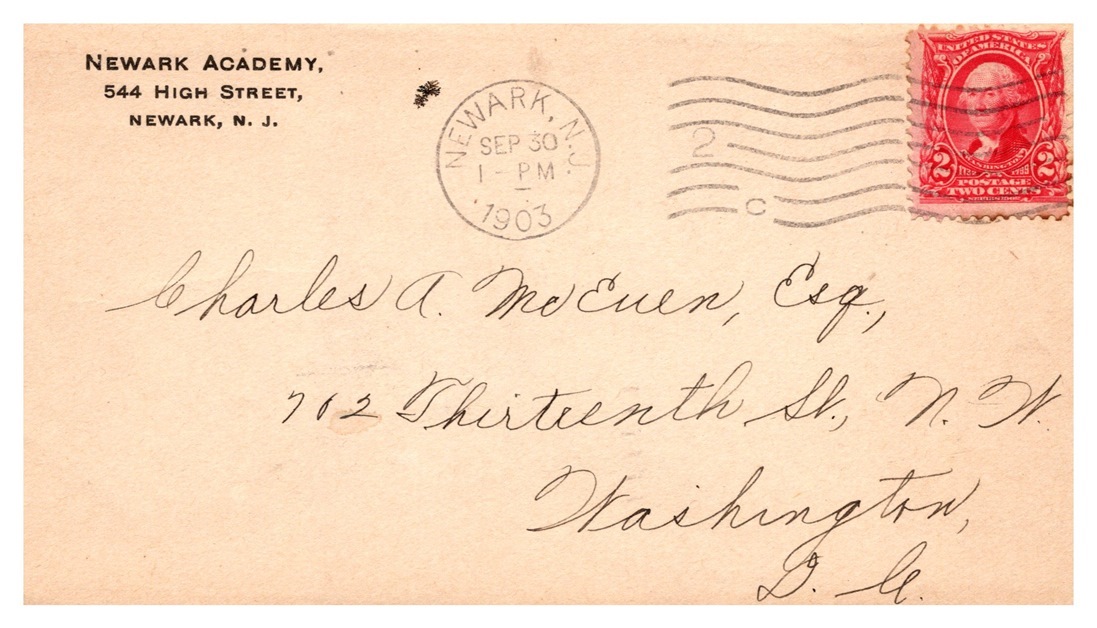 NEWARK ACADEMY,
544 HIGH STREET,
NEWARK, N. J.
NEWARK, N.J.
SEP 30
1 - PM
1903
2
C
UNITED STATES
OF AMERICA
WASHINGTON
1732 1799
2 2
POSTAGE
TWO CENTS
Charles A. McEuen, Esq.,
702 Thirteenth St., N. W.
Washington,
D. C.